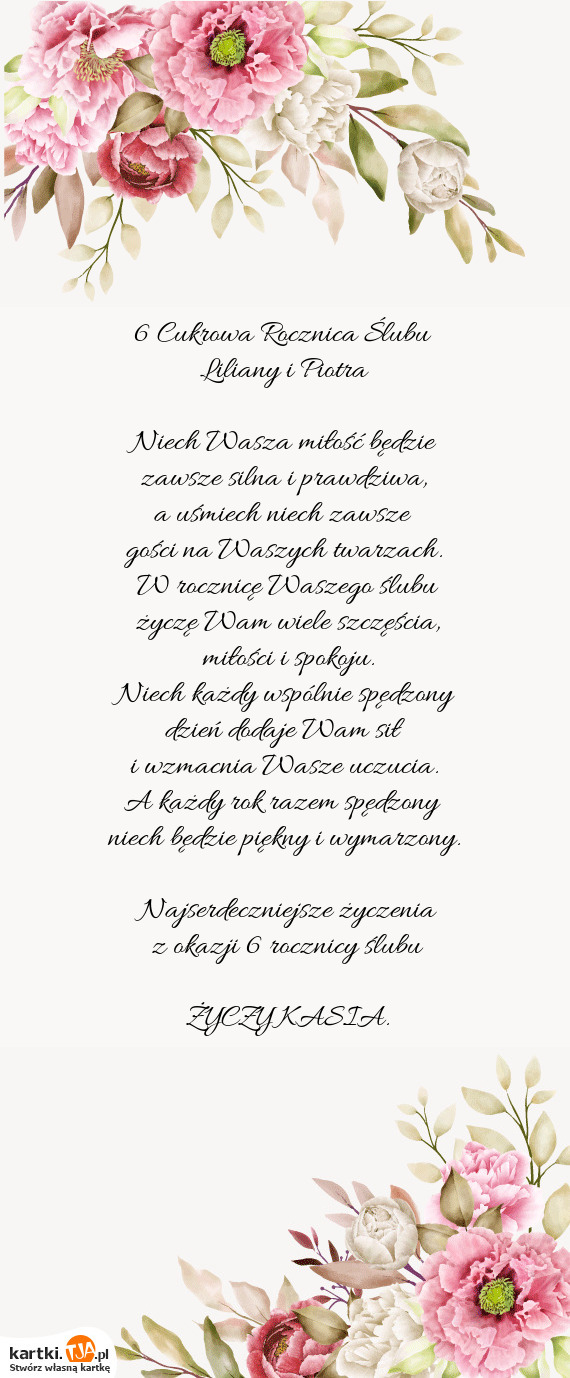 6 Cukrowa Rocznica Ślubu
Liliany i Piotra
Niech Wasza miłość będzie
zawsze silna i prawdziwa,
a uśmiech niech zawsze
gości na Waszych twarzach.
W rocznicę Waszego ślubu
życzę Wam wiele szczęścia,
miłości i spokoju.
Niech każdy wspólnie spędzony
dzień dodaje Wam sił
i wzmacnia Wasze uczucia.
A każdy rok razem spędzony
niech będzie piękny i wymarzony.
Najserdeczniejsze życzenia
z okazji 6 rocznicy ślubu
ŻYCZY KASIA.
kartki.TJA.pl
Stwórz własną kartkę